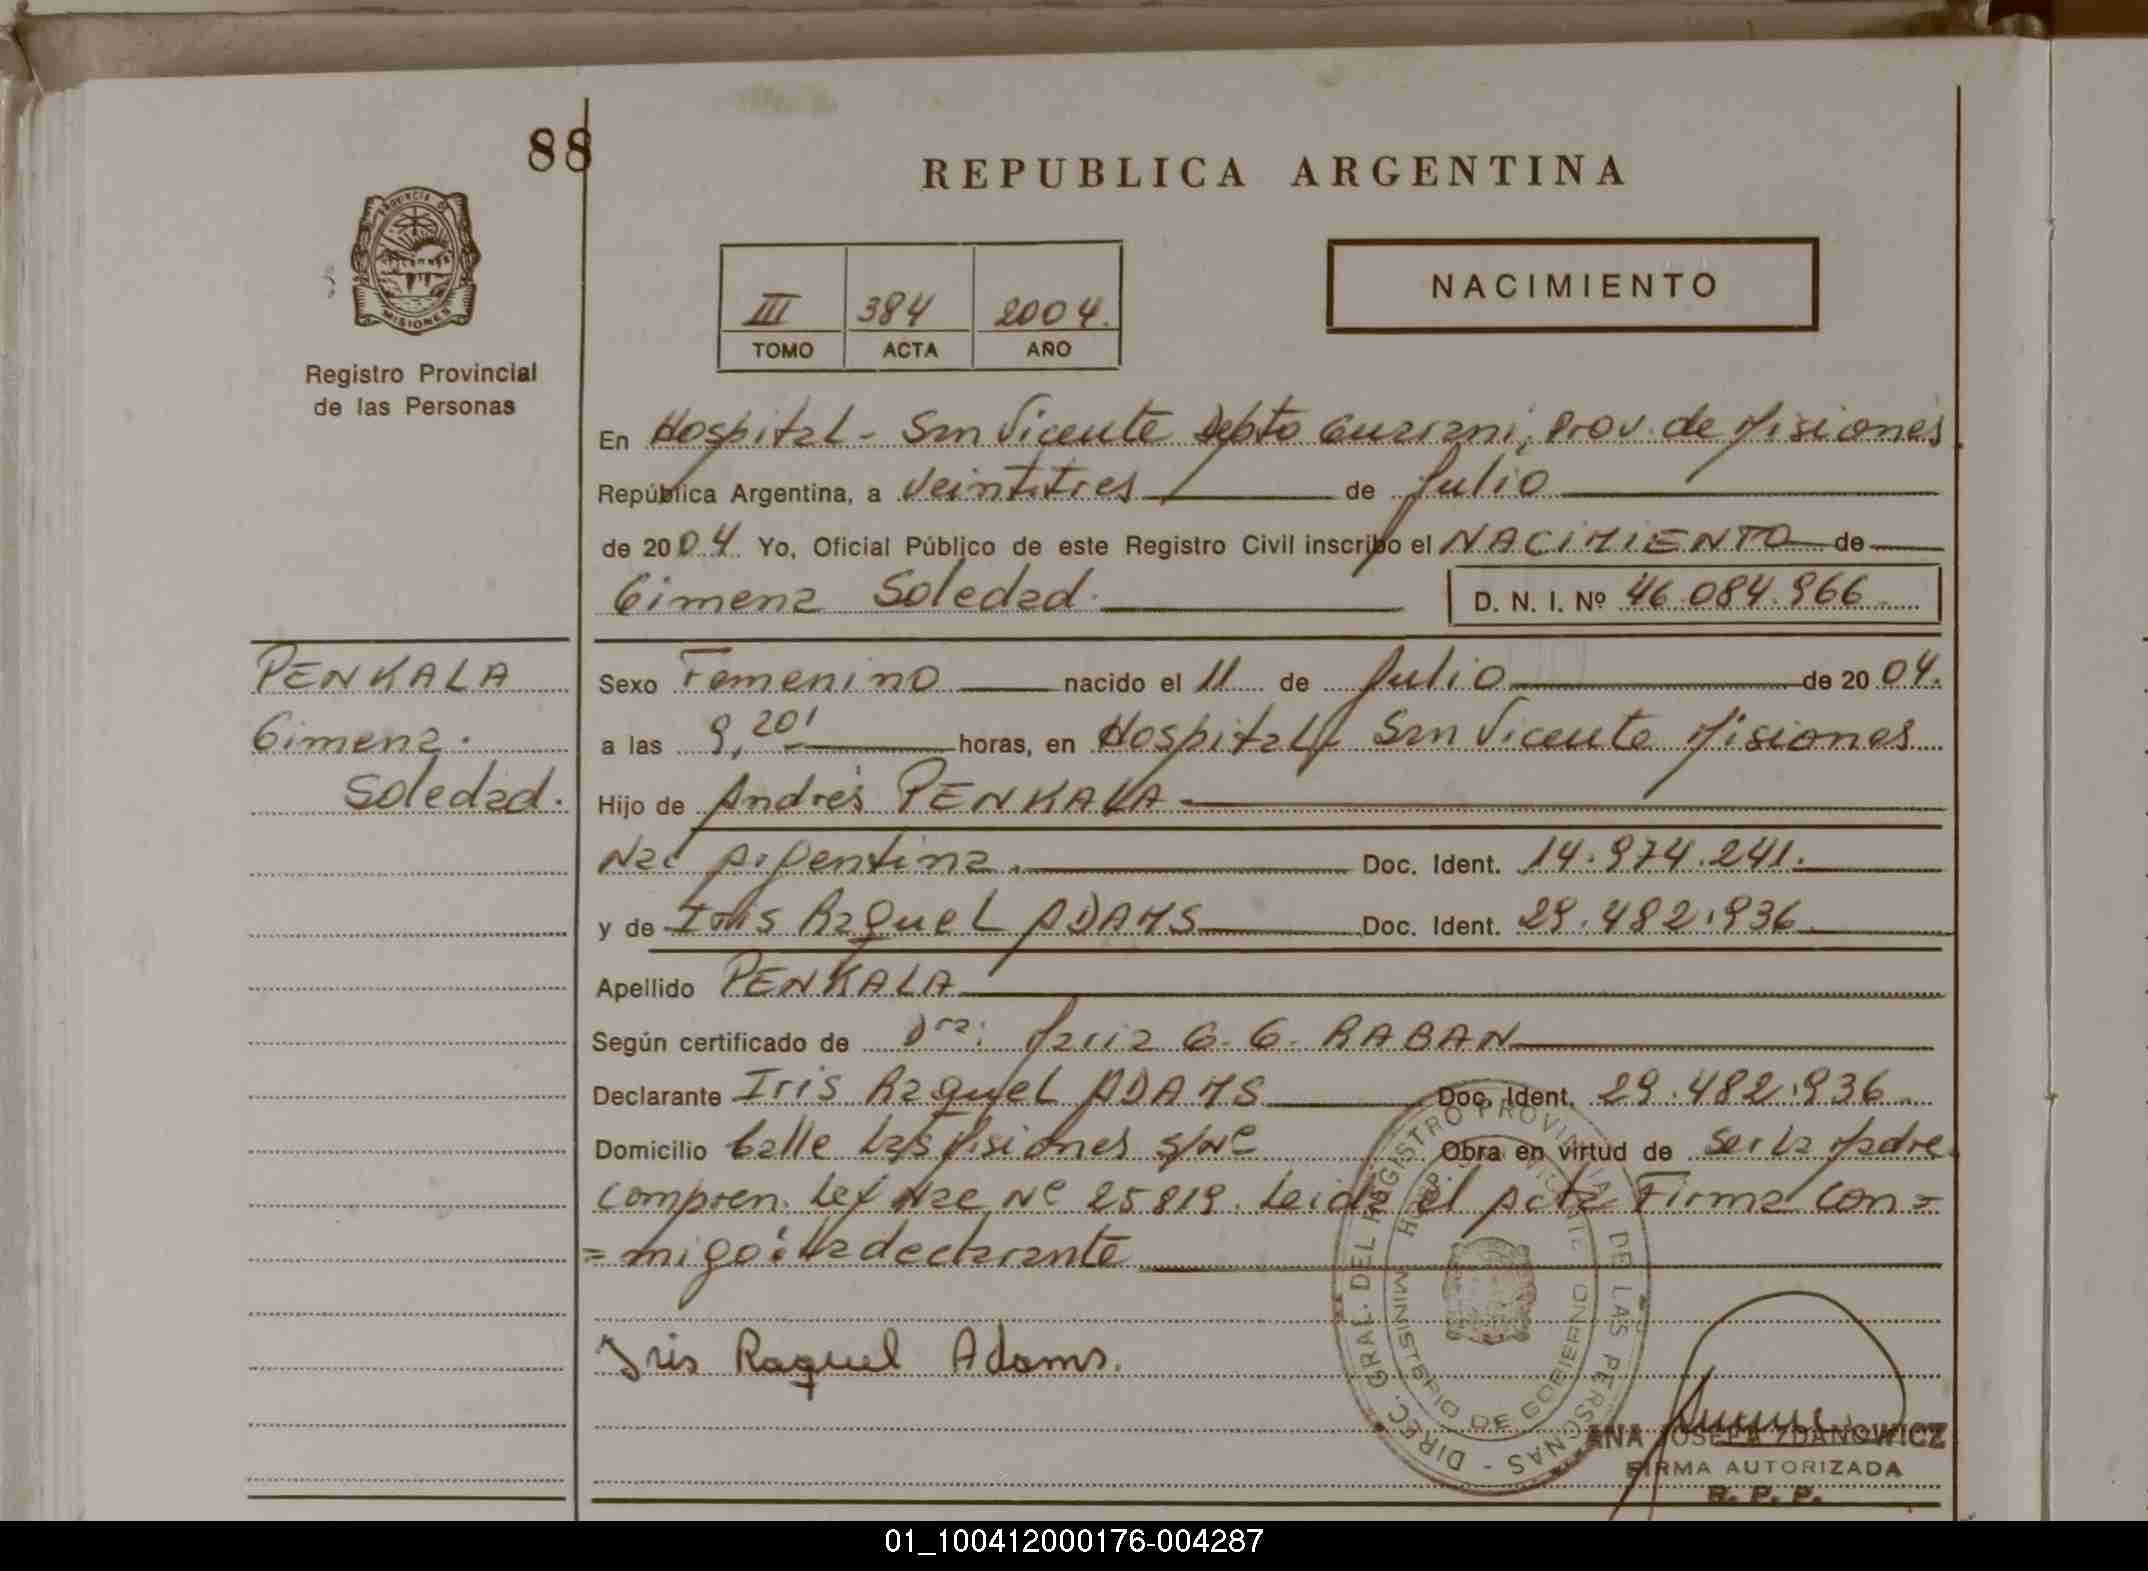 88
REPUBLICA ARGENTINA
PROVINCIA DE
MISIONES
Registro Provincial
de las Personas
III 384 2004.
TOMO ACTA AÑO
NACIMIENTO
En Hospital - San Vicente Depto Guarani, Prov. de Misiones
República Argentina, a veintitres de Julio
de 2004. Yo, Oficial Público de este Registro Civil inscribo el NACIMIENTO de
Gimena Soledad. D. N. I. Nº 46.084.966
PENKALA
Gimena.
Soledad.
Sexo Femenino nacido el 11 de Julio de 2004.
a las 9,20' horas, en Hospital San Vicente Misiones
Hijo de Andrés PENKALA
Nac Argentina. Doc. Ident. 14.974.241.
y de Iris Raquel ADAMS Doc. Ident. 29.482.936
Apellido PENKALA
Según certificado de Dra: Maria G. G. RABAN
Declarante Iris Raquel ADAMS Doc. Ident. 29.482.936
Domicilio Calle Las Misiones s/Nº Obra en virtud de ser la Madre
Compren. Ley Nac Nº 25819. Leida el Acta Firma con=
=migo: la declarante
Iris Raquel Adams.
DIREC. GRAL. DEL REGISTRO PROVINCIAL DE LAS PERSONAS -
MINISTERIO DE GOBIERNO
ANA JOSEFA ZDANOWICZ
FIRMA AUTORIZADA
R. P. P.
01_100412000176-004287